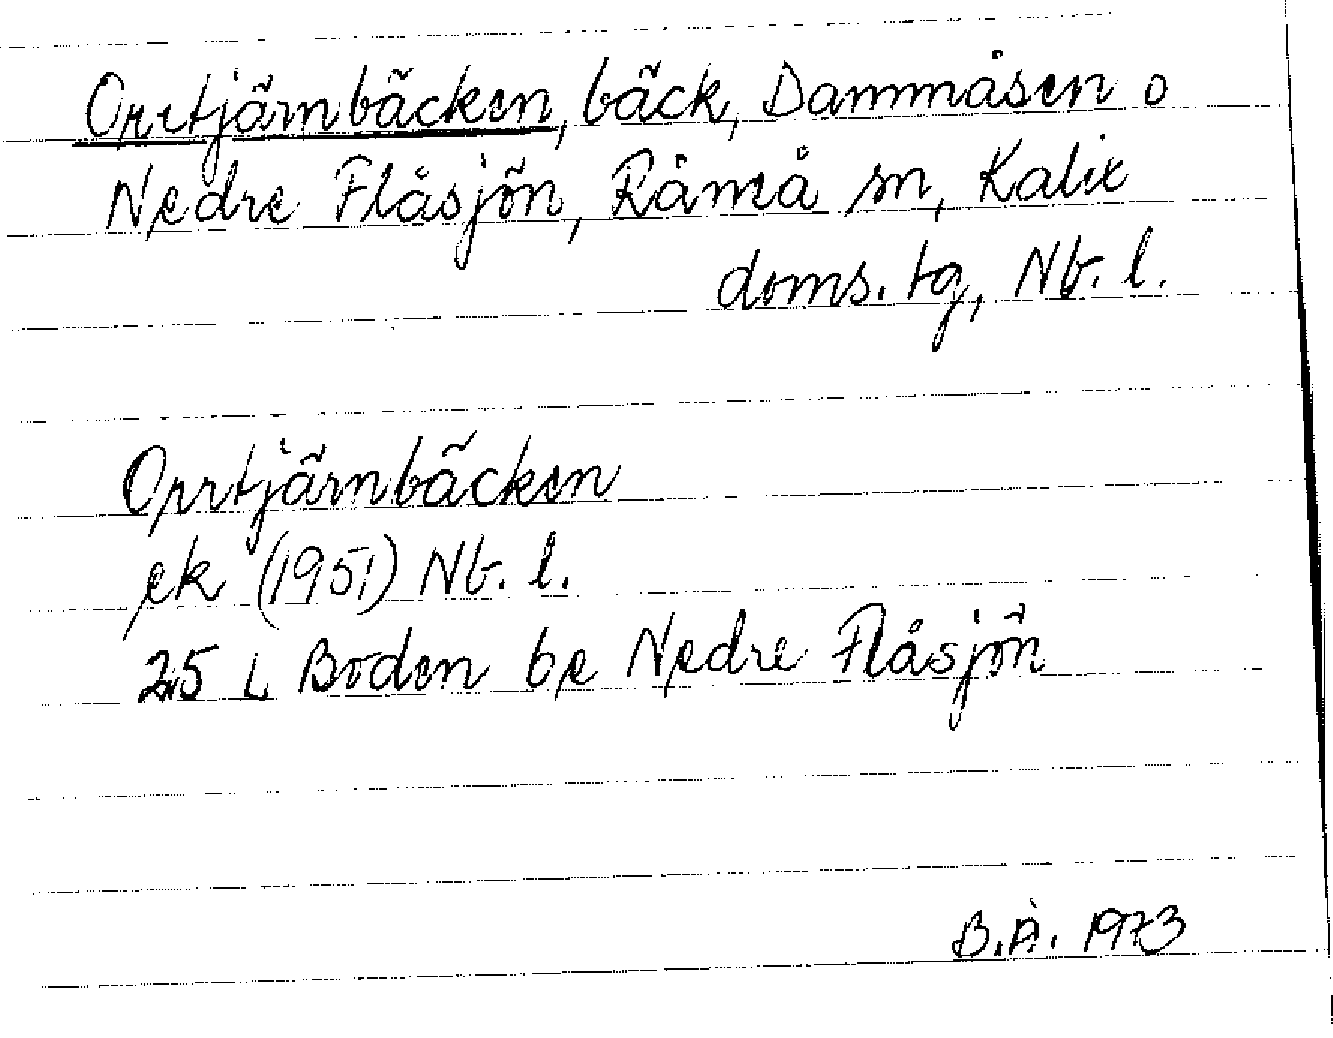 Orrtjärnbäcken, bäck, Dammåsen o
Nedre Flåsjön, Råneå sn, Kalix
doms. tg, Nb. l.
Orrtjärnbäcken
ek (1951) Nb. l.
25 L Boden be Nedre Flåsjön
B.Å. 1973